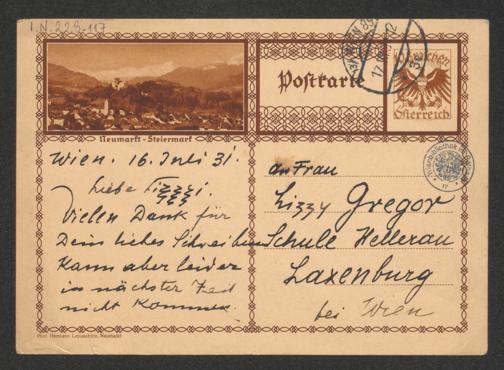 I.N. 229.117
Postkarte
Österreich
Neumarkt - Steiermark
Wien. 16. Juli 31.
Liebe Lizzi!
Vielen Dank für
Dein liebes Schreiben
Kann aber leider
in nächster Zeit
nicht kommen.
an Frau
Lizzy Gregor
Schule Hellerau
Laxenburg
bei Wien